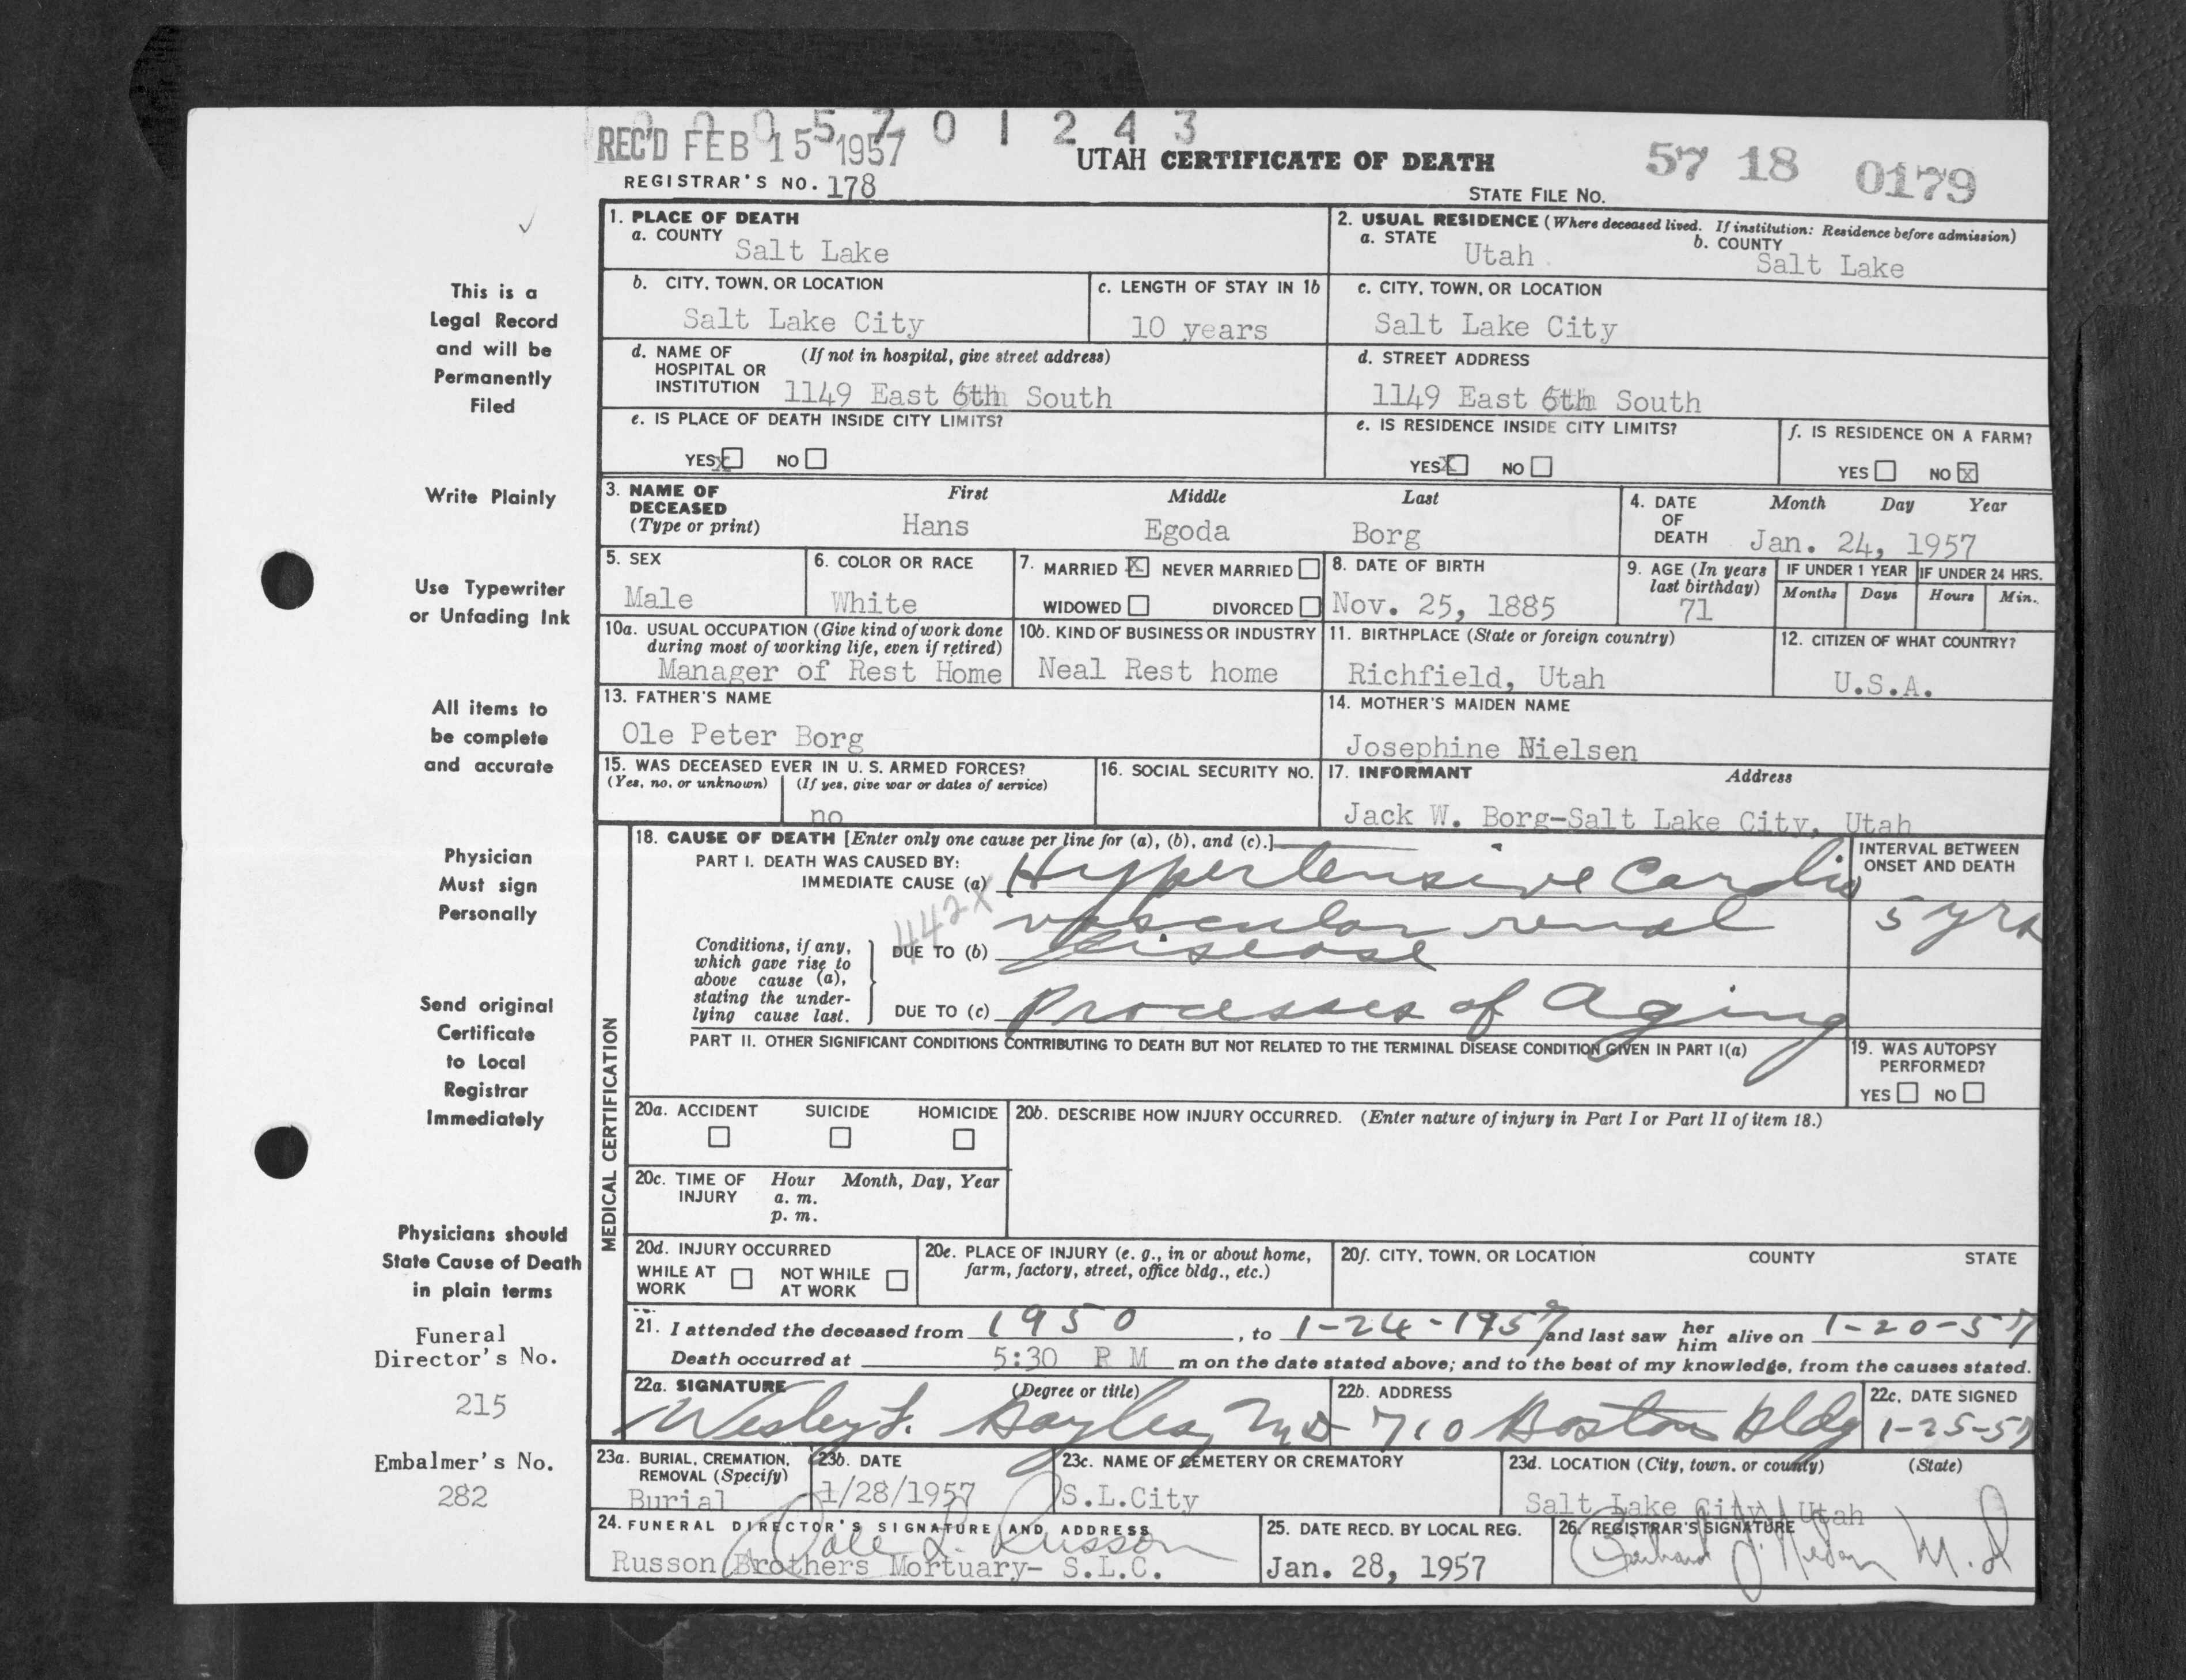 0005701243
REC'D FEB 15 1957
UTAH CERTIFICATE OF DEATH
57 18 0179
REGISTRAR'S NO. 178
STATE FILE NO.
This is a
Legal Record
and will be
Permanently
Filed
Write Plainly
Use Typewriter
or Unfading Ink
All items to
be complete
and accurate
Physician
Must sign
Personally
Send original
Certificate
to Local
Registrar
Immediately
Physicians should
State Cause of Death
in plain terms
Funeral
Director's No.
215
Embalmer's No.
282
1. PLACE OF DEATH
a. COUNTY Salt Lake
2. USUAL RESIDENCE (Where deceased lived. If institution: Residence before admission)
a. STATE Utah b. COUNTY Salt Lake
b. CITY, TOWN, OR LOCATION
Salt Lake City
c. LENGTH OF STAY IN 1b
10 years
c. CITY, TOWN, OR LOCATION
Salt Lake City
d. NAME OF (If not in hospital, give street address)
HOSPITAL OR
INSTITUTION 1149 East 6th South
d. STREET ADDRESS
1149 East 6th South
e. IS PLACE OF DEATH INSIDE CITY LIMITS?
YES X NO
e. IS RESIDENCE INSIDE CITY LIMITS?
YES X NO
f. IS RESIDENCE ON A FARM?
YES NO X
3. NAME OF First Middle Last
DECEASED
(Type or print) Hans Egoda Borg
4. DATE Month Day Year
OF
DEATH Jan. 24, 1957
5. SEX
Male
6. COLOR OR RACE
White
7. MARRIED X NEVER MARRIED
WIDOWED DIVORCED
8. DATE OF BIRTH
Nov. 25, 1885
9. AGE (In years
last birthday)
71
IF UNDER 1 YEAR IF UNDER 24 HRS.
Months Days Hours Min.
10a. USUAL OCCUPATION (Give kind of work done
during most of working life, even if retired)
Manager of Rest Home
10b. KIND OF BUSINESS OR INDUSTRY
Neal Rest home
11. BIRTHPLACE (State or foreign country)
Richfield, Utah
12. CITIZEN OF WHAT COUNTRY?
U.S.A.
13. FATHER'S NAME
Ole Peter Borg
14. MOTHER'S MAIDEN NAME
Josephine Nielsen
15. WAS DECEASED EVER IN U. S. ARMED FORCES?
(Yes, no, or unknown) (If yes, give war or dates of service)
no
16. SOCIAL SECURITY NO.
17. INFORMANT Address
Jack W. Borg-Salt Lake City, Utah
MEDICAL CERTIFICATION
18. CAUSE OF DEATH [Enter only one cause per line for (a), (b), and (c).]
PART I. DEATH WAS CAUSED BY:
IMMEDIATE CAUSE (a) Hypertensive Cardio
442X
vascular renal
Conditions, if any,
which gave rise to
above cause (a),
stating the under-
lying cause last.
DUE TO (b) disease
DUE TO (c) Processes of aging
INTERVAL BETWEEN
ONSET AND DEATH
5 yrs
PART II. OTHER SIGNIFICANT CONDITIONS CONTRIBUTING TO DEATH BUT NOT RELATED TO THE TERMINAL DISEASE CONDITION GIVEN IN PART I(a)
19. WAS AUTOPSY
PERFORMED?
YES NO
20a. ACCIDENT SUICIDE HOMICIDE
20b. DESCRIBE HOW INJURY OCCURRED. (Enter nature of injury in Part I or Part II of item 18.)
20c. TIME OF Hour Month, Day, Year
INJURY a. m.
p. m.
20d. INJURY OCCURRED
WHILE AT NOT WHILE
WORK AT WORK
20e. PLACE OF INJURY (e. g., in or about home,
farm, factory, street, office bldg., etc.)
20f. CITY, TOWN, OR LOCATION COUNTY STATE
21. I attended the deceased from 1950, to 1-24-1957 and last saw her him alive on 1-20-57
Death occurred at 5:30 P M m on the date stated above; and to the best of my knowledge, from the causes stated.
22a. SIGNATURE (Degree or title)
Wesley F. Bayles, MD
22b. ADDRESS
710 Boston Bldg
22c. DATE SIGNED
1-25-57
23a. BURIAL, CREMATION,
REMOVAL (Specify)
Burial
23b. DATE
1/28/1957
23c. NAME OF CEMETERY OR CREMATORY
S.L.City
23d. LOCATION (City, town, or county) (State)
Salt Lake City, Utah
24. FUNERAL DIRECTOR'S SIGNATURE AND ADDRESS
Dale L. Russon
Russon Brothers Mortuary- S.L.C.
25. DATE RECD. BY LOCAL REG.
Jan. 28, 1957
26. REGISTRAR'S SIGNATURE
M.D